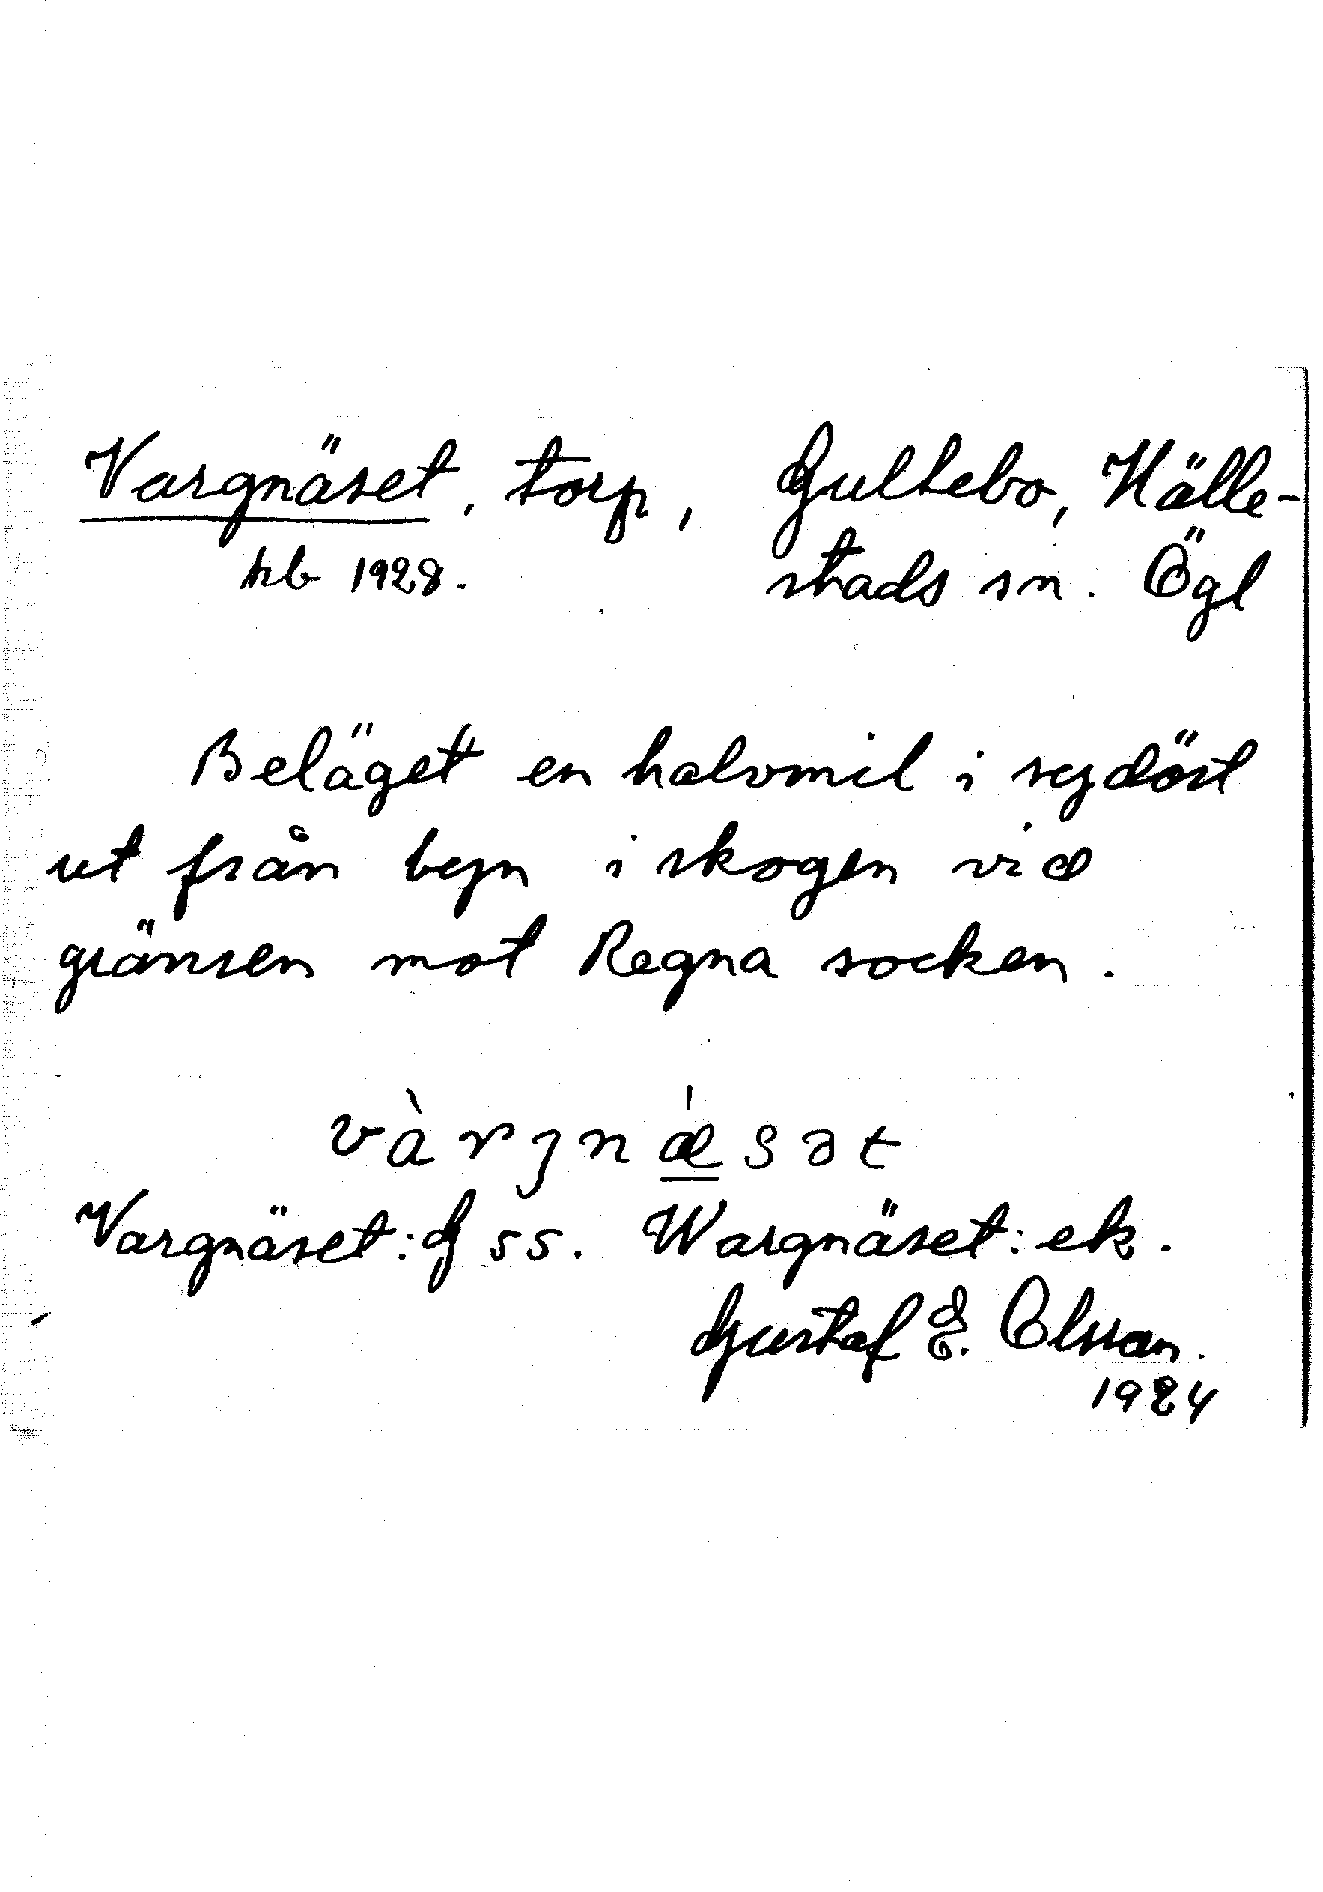 Vargnäset, torp, Gultebo, Hälle-
hb 1928. stads sn. Ögl
Beläget en halvmil i sydöst
ut från byn i skogen vid
gränsen mot Regna socken.
vàrgnǽsət
Vargnäset: G ss. Wargnäset: ek.
Gustaf E. Olsson.
1924